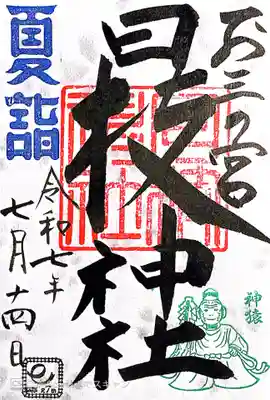 お三の宮
日枝神社
夏詣
令和七年
七月十四日
神猿